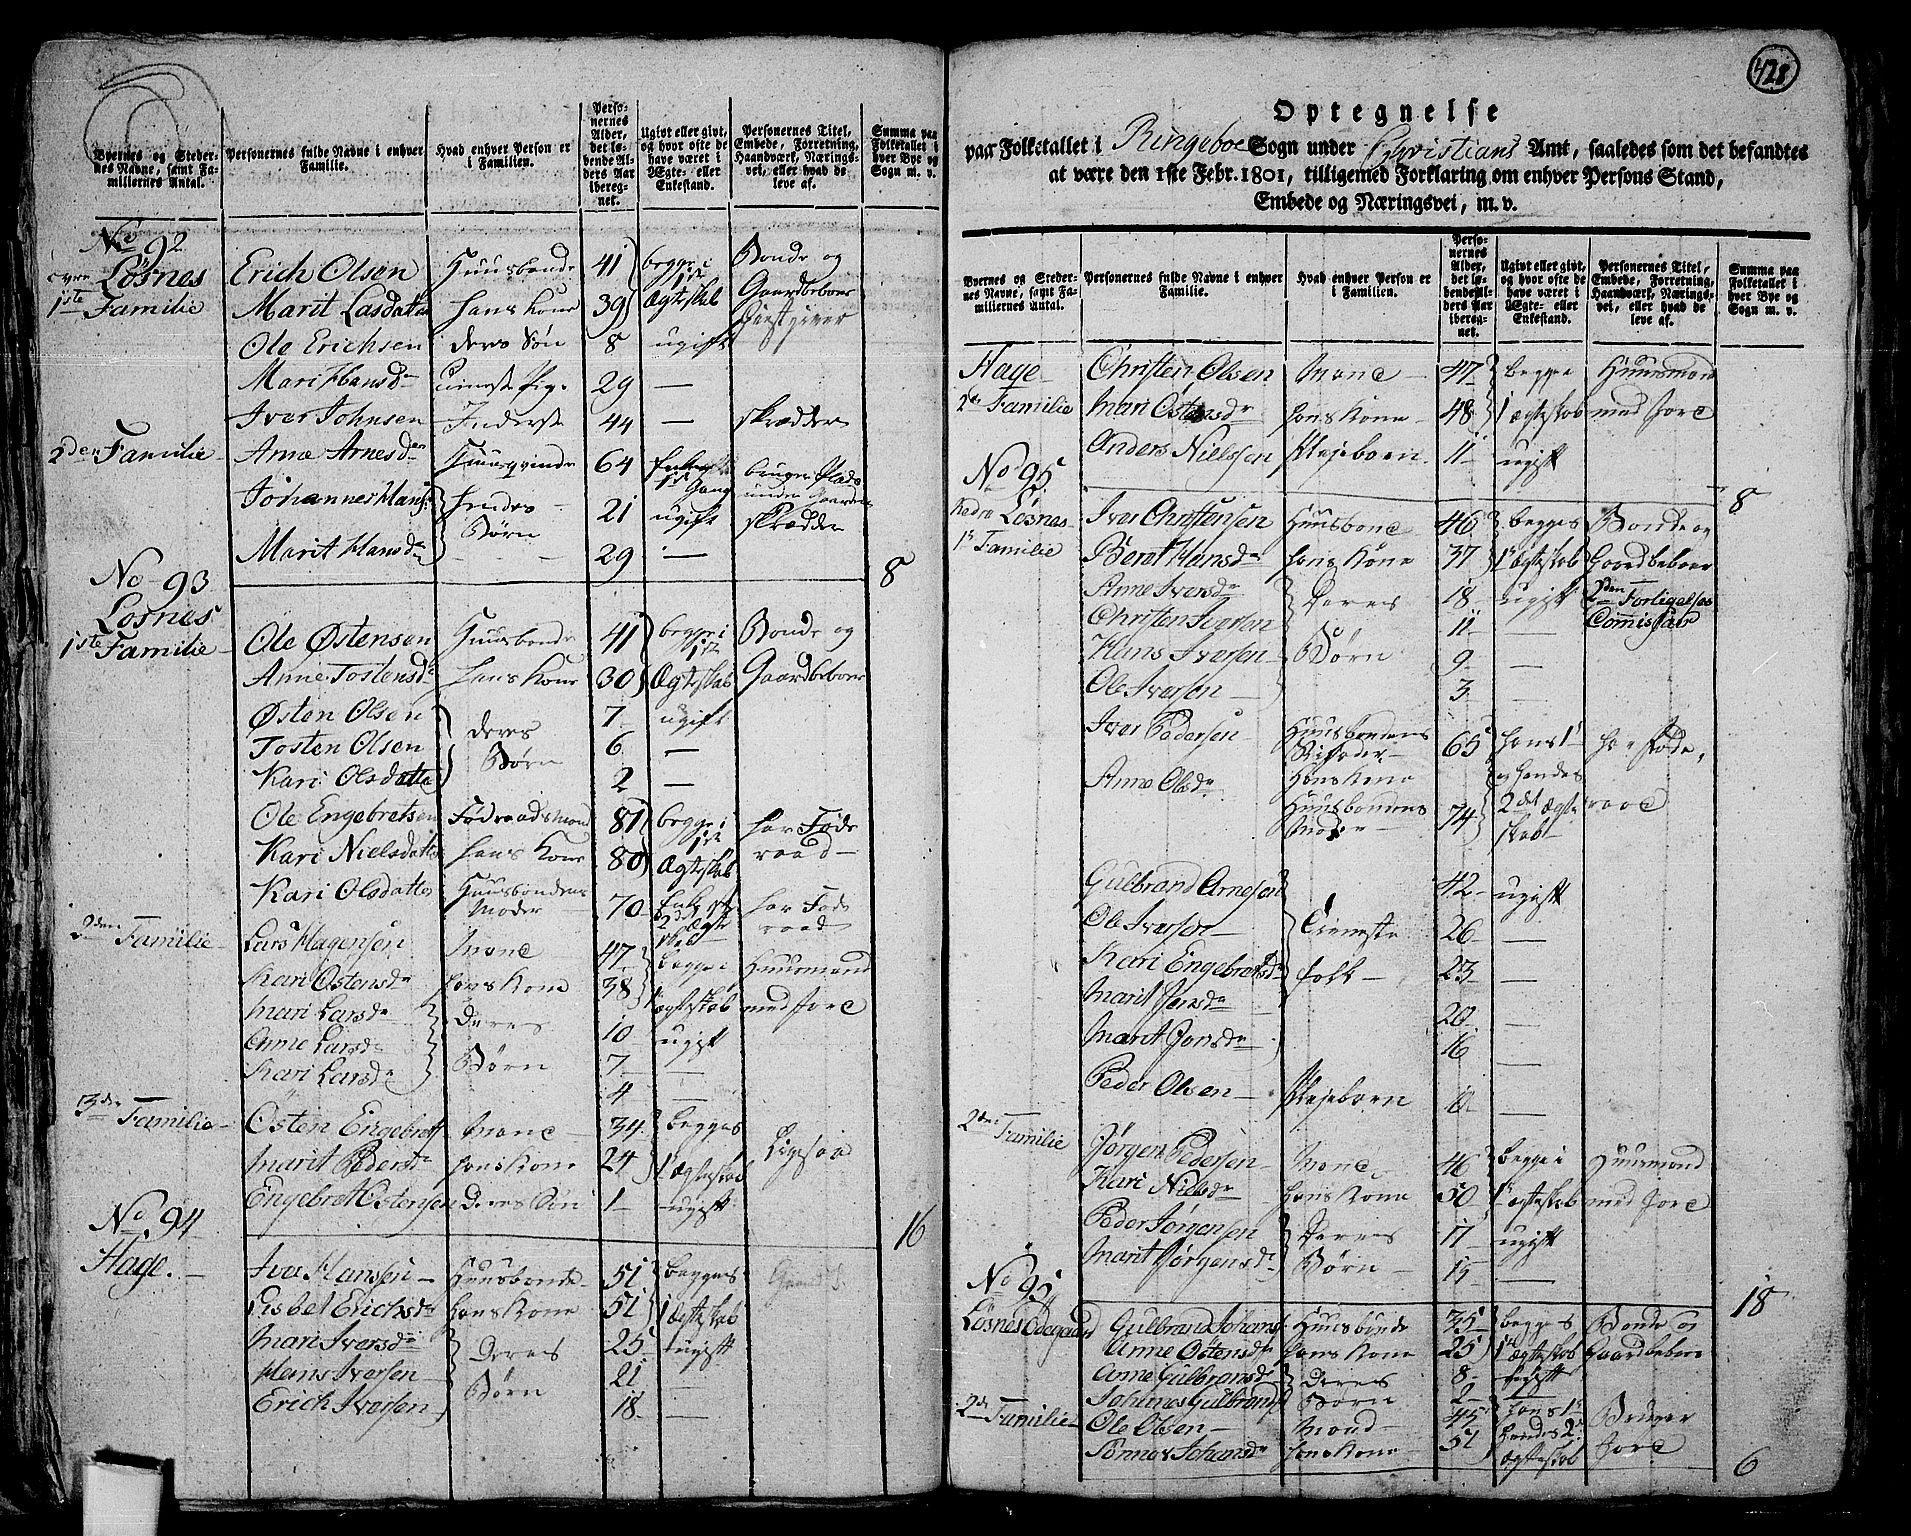 428
Byernes og Steder-
nes Navne, samt Fa-
millernes Antal.
Personernes fulde Navne i enhver
Familie.
Hvad enhver Person er
i Familien.
Perso-
nernes
Alder,
det lø-
bende Al-
ders Aar
ibereg-
net.
Ugivt eller givt,
og hvor ofte de
have været i
Ægte- eller
Enkestand.
Personernes Titel,
Embede, Forretning,
Haandværk, Nærings-
vei, eller hvad de
leve af.
Summa paa
Folketallet i
hver Bye og
Sogn m. v.
No 92
øvre Løsnes Erich Olsen Huusbonde 41 begge i Bonde og
1ste Familie Marit Lasdatter hans Kone 39 1ste Ægteskab Gaardbeboer
Giestgiver
Ole Erichsen deres Søn 8 ugift
Mari Hansdr tieneste Pige 29 —
Iver Johnsen Inderste 44 — skrædder
2den Familie Anne Arnesdr Huusqvinde 64 Enke 1ste Gang bruger Plads under Gaarden
Johannes Hanss. hendes 21 ugift skrædder
Marit Hansdr Børn 29 —
8
No 93
Løsnes
1ste Familie Ole Østensen Huusbonde 41 begge i 1ste Bonde og
Anne Tostensdr hans Kone 30 Ægteskab Gaardbeboer
Østen Olsen deres 7 ugift
Tosten Olsen Børn 6 —
Kari Olsdatter 2 —
Ole Engebretsen Føderaadsmand 81 begge i 1ste har Føde
Kari Nielsdatter hans Kone 80 Ægteskab raad
Kari Olsdatter Huusbondens Moder 70 Enke 2det Ægteskab har Føderaad
2den Familie Lars Hagensen Mand 47 begge i Huusmand
Kari Ostensdr hans Kone 38 1ste Ægteskab med Jord
Mari Larsdr Deres 10 ugift
Anne Larsdr Børn 7 —
Kari Larsdr 4 —
3die Familie Osten Engebrets. Mand 34 begges Ligesaa
Marit Pedersdr hans Kone 24 1 Ægteskab
Engebret Ostensen Deres Søn 1 ugift
16
No 94
Hage. Iver Hansen Huusbonde 51 begges
Lisbet Erichsdr hans Kone 51 1 Ægteskab
Mari Iversdr Deres 25 ugift
Hans Iversen Børn 21 —
Erich Iversen 18 —
Optegnelse
paa Folketallet i Ringeboe Sogn under Christians Amt, saaledes som det befandtes
at være den 1ste Febr. 1801, tilligemed Forklaring om enhver Persons Stand,
Embede og Næringsvei, m. v.
Byernes og Steder-
nes Navne, samt Fa-
millernes Antal.
Personernes fulde Navne i enhver
Familie.
Hvad enhver Person er
i Familien.
Perso-
nernes
Alder,
det lø-
bende Al-
ders Aar
ibereg-
net.
Ugivt eller givt,
og hvor ofte de
have været i
Ægte- eller
Enkestand.
Personernes Titel,
Embede, Forretning,
Haandværk, Nærings-
vei, eller hvad de
leve af.
Summa paa
Folketallet i
hver Bye og
Sogn m. v.
Hage Christen Olsen Mand 47 begge Huusmand
2den Familie Mari Ostensdr hans Kone 48 1 Ægteskab med Jord
Anders Nielssen Plejebarn 11 ugift
8
No 95
Nedre Løsnes Iver Christensen Huusbond 46 begges Bonde og
1ste Familie Beret Hansdr hans Kone 37 1ste Ægteskab Gaardbeboer
Anne Iversdr Deres 18 ugift Forligelses
Christen Iverson Børn 11 — Comissair
Hans Iversen 9 —
Ole Iversen 3 —
Iver Pedersen Huusbondens Stifader 65 hans 1ste har Føde
Anne Olsdr Hans Kone Huusbondens Moder 74 og hendes 2det Ægteskab raad
Gulbrand Arnesen 42 ugift
Ole Iversen Tieneste 26 —
Kari Engebretsdr folk 23 —
Marit Jonsdr 20 —
Marit Jonsdr 16 —
Peder Olsen Plejebarn 10 —
2den Familie Jørgen Pedersen Mand 46 begge i Huusmand
Kari Nielsdr hans Kone 50 1ste Ægteskab med Jord
Peder Jørgensen Deres 17 ugift
Marit Jørgensdr Børn 15 —
18
No 95
Løsnes Ødegaard Gulbrand Johans. Huusbonde 35 begges Bonde og
Anne Ostensdr hans Kone 25 1ste Ægteskab Gaardbeboer
Anne Gulbransdr Deres 8 ugift
Johannes Gulbrands. Børn 2 —
2den Familie Ole Olsen Mand 45 hans 1ste Bruger
Johansdr hans Kone 51 hendes 2det Ægteskab Jord
6